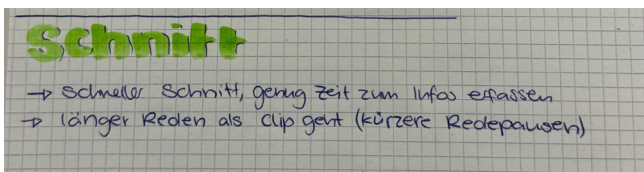 Schnitt
→ schneller Schnitt, genug Zeit zum Infos erfassen
→ länger Reden als Clip geht (kürzere Redepausen)